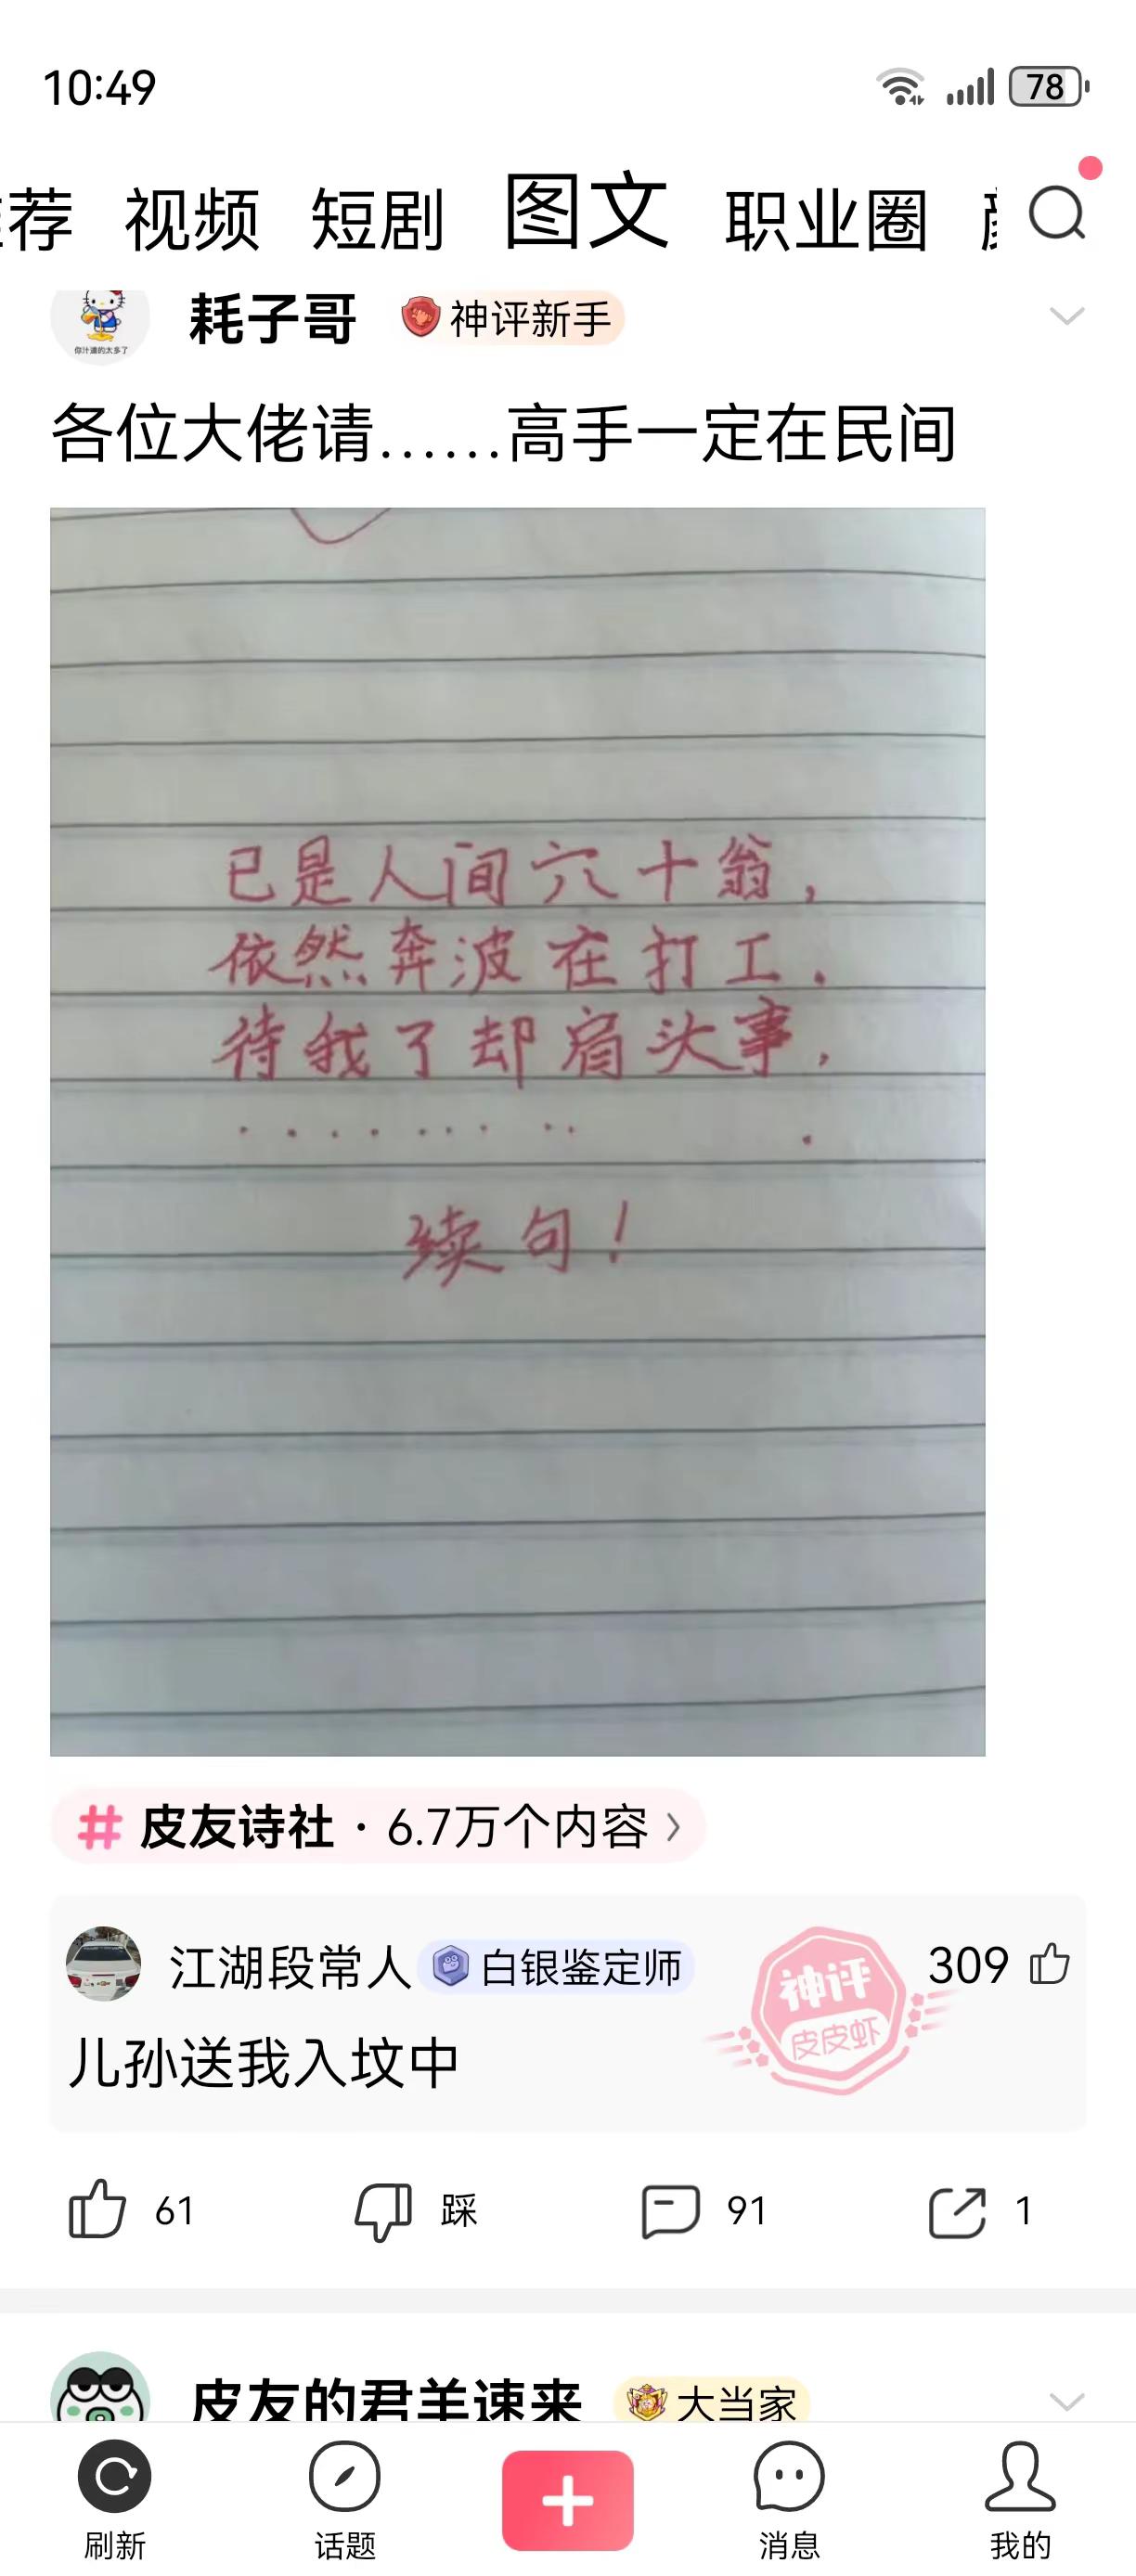 10:49
78
荐 视频 短剧 图文 职业圈
耗子哥 神评新手
你汁迪的太多了
各位大佬请……高手一定在民间
已是人间六十翁，
依然奔波在打工。
待我了却肩头事，
.......... .
续句！
皮友诗社 · 6.7万个内容
江湖段常人 白银鉴定师 309
神评
皮皮虾
儿孙送我入坟中
61 踩 91 1
皮友的君羊速来 大当家
刷新 话题 消息 我的